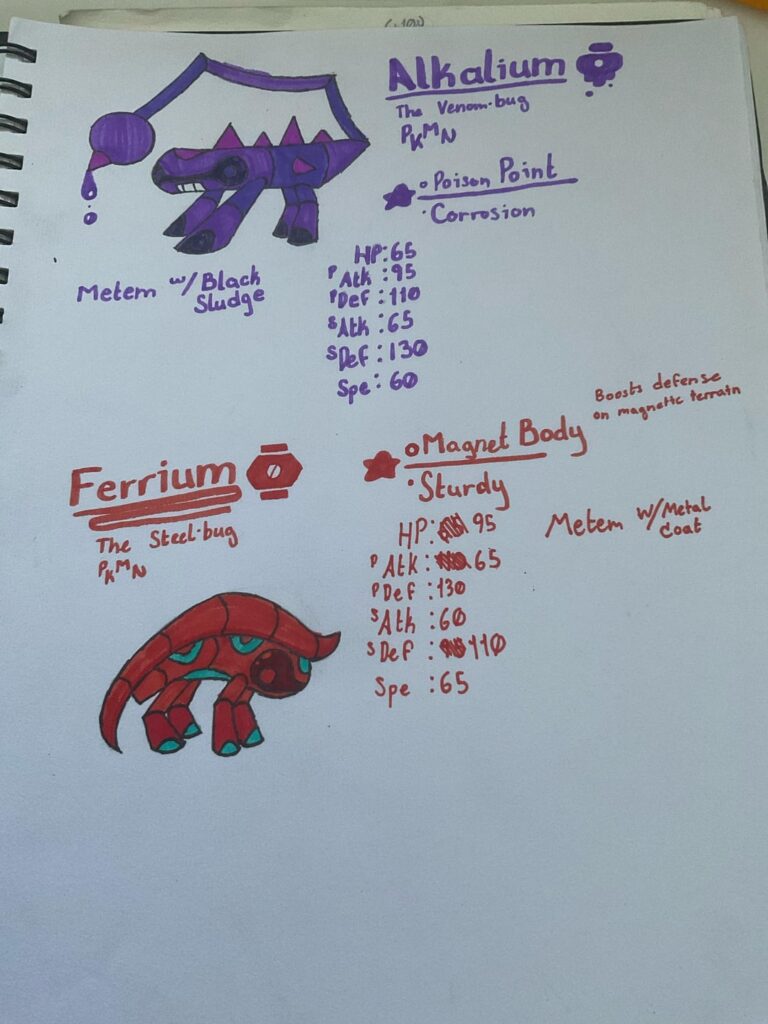 Alkalium
The Venom-bug
PKMN
Poison Point
Corrosion
HP:65
PAtk:95
PDef:110
SAtk:65
SDef:130
Spe:60
Metem w/Black
Sludge
Ferrium
The Steel-bug
PKMN
Magnet Body
Boosts defense
on magnetic terrain
Sturdy
HP: 95
PAtk: 65
PDef:130
SAtk:60
SDef: 110
Spe:65
Metem w/Metal
Coat